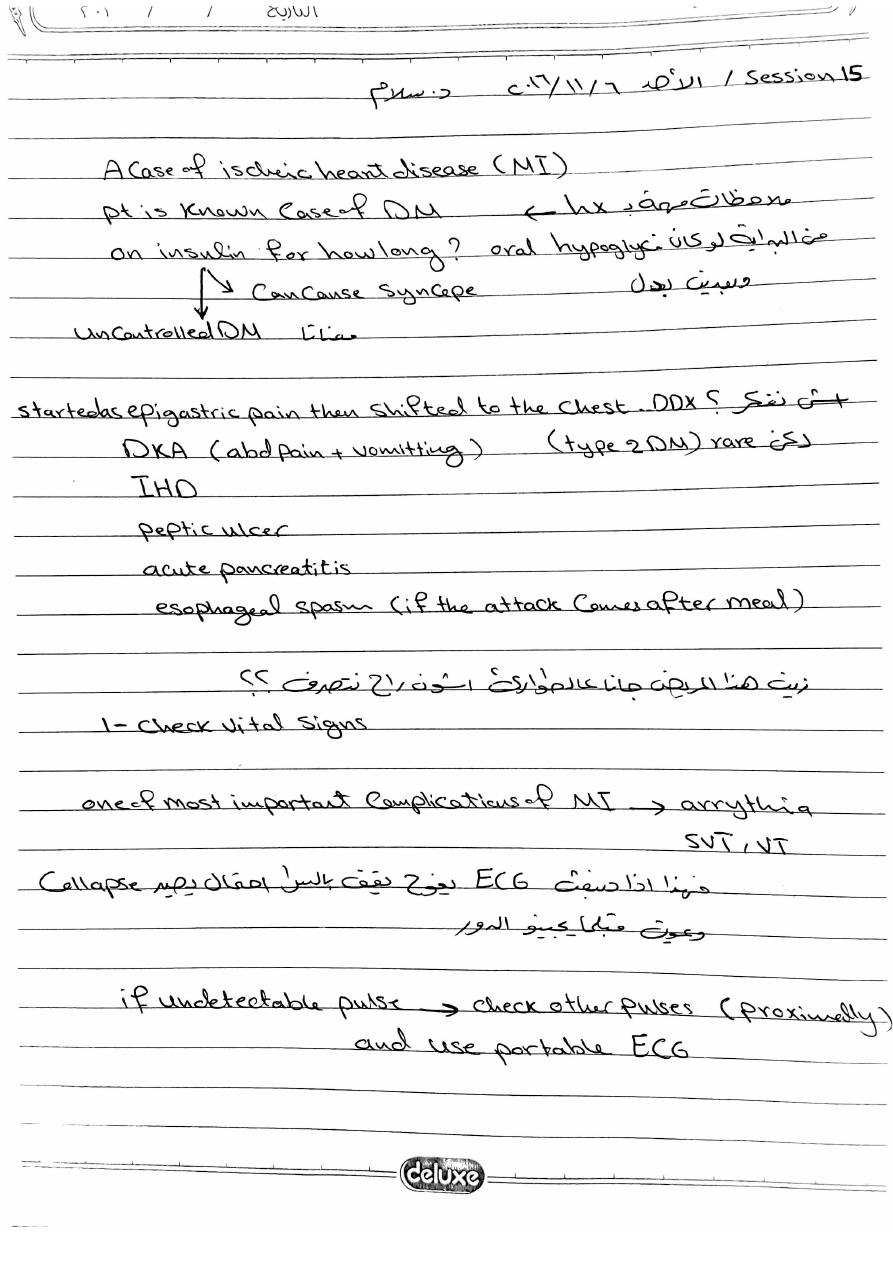 التاريخ / / ٢٠١
Session 15 / الأحد ٢٠١٦/١١/٦ د. سلام
A Case of ischeic heart disease (MI)
pt is Known Case of DM ← hx ملاحظات مهمة بـ
on insulin for how long? oral hypoglyc من البداية لو كان
Can Cause Syncope وبعدين بدل
Uncontrolled DM معناتا
started as epigastric pain then Shifted to the chest. DDX اش نفكر ؟
DKA (abd pain + vomitting) (type 2 DM) rare لكن
IHD
peptic ulcer
acute pancreatitis
esophageal spasm (if the attack Comes after meal)
زين هذا المريض جانا عالطوارئ اشون راح نتصرف ؟؟
1- Check Vital Signs
one of most important Complications of MI → arrythia
SVT, VT
فهذا اذا ECG يروح يقف بالسرا احتمال يصير Collapse
ويموت قبلما يجينو الدور
if undetectable pulse → check other pulses (proximally)
and use portable ECG
deluxe